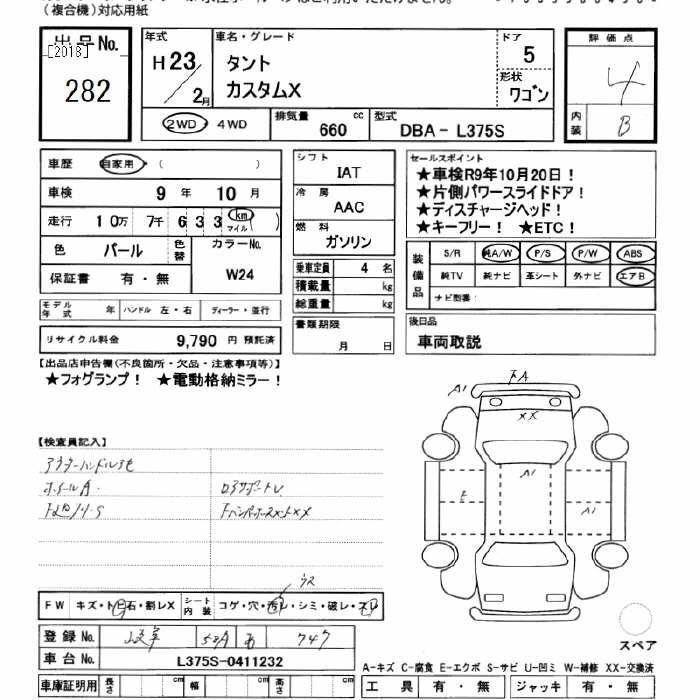 （複合機）対応用紙
出品No.
[2018]
282
年式
H23／2月
車名・グレード
タント
カスタムX
ドア
5
形状
ワゴン
評価点
4
内装
B
2WD・4WD
排気量
660 cc
型式
DBA－L375S
車歴 自家用・（ ）
車検 9年 10月
走行 10万 7千 6 3 3 km マイル （ ）
色 パール 色替 カラーNo.
W24
保証書 有・無
モデル年式 年 ハンドル 左・右 ディーラー・並行
リサイクル料金 9,790 円 預託済
シフト
IAT
冷房
AAC
燃料
ガソリン
乗車定員 4 名
積載量 kg
総重量 kg
書類期限
月 日
セールスポイント
★車検R9年10月20日！
★片側パワースライドドア！
★ディスチャージヘッド！
★キーフリー！ ★ETC！
装備品
S/R 純A/W P/S P/W ABS
純TV 純ナビ 革シート 外ナビ エアB
ナビ型番：
後日品
車両取説
【出品店申告欄（不良箇所・欠品・注意事項等）】
★フォグランプ！ ★電動格納ミラー！
【検査員記入】
ホイールA
FA
A1
XX
A1
E
A1
FW キズ・トビ石・割レX シート内装 コゲ・穴・汚レ・シミ・破レ・スレ
登録No. 岐阜 581 747
車台No. L375S-0411232
車庫証明用 長さ cm 幅 cm 高さ cm
スペア
A-キズ C-腐食 E-エクボ S-サビ U-凹ミ W-補修 XX-交換済
工具 有・無 ジャッキ 有・無